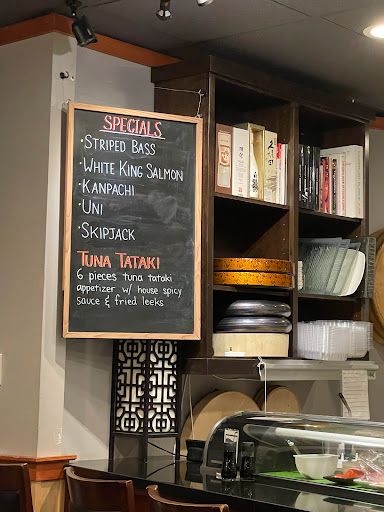 SPECIALS
· STRIPED BASS
· WHITE KING SALMON
· KANPACHI
· UNI
· SKIPJACK
TUNA TATAKI
6 pieces tuna tataki
appetizer w/ house spicy
sauce & fried leeks